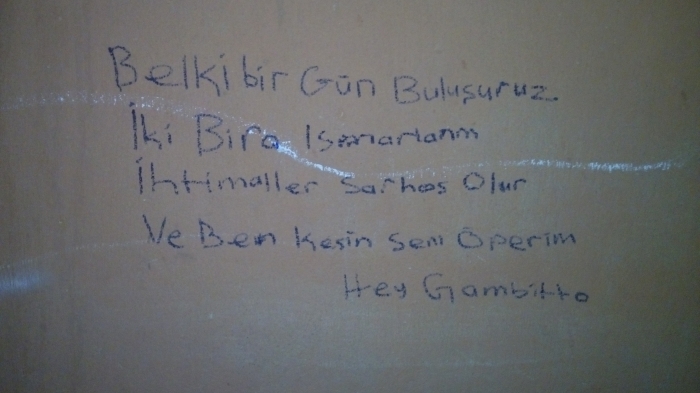 Belki bir Gün Buluşuruz
İki Bira Ismarlarım
İhtimaller Sarhoş Olur
Ve Ben Kesin Seni Öperim
Hey Gambitto